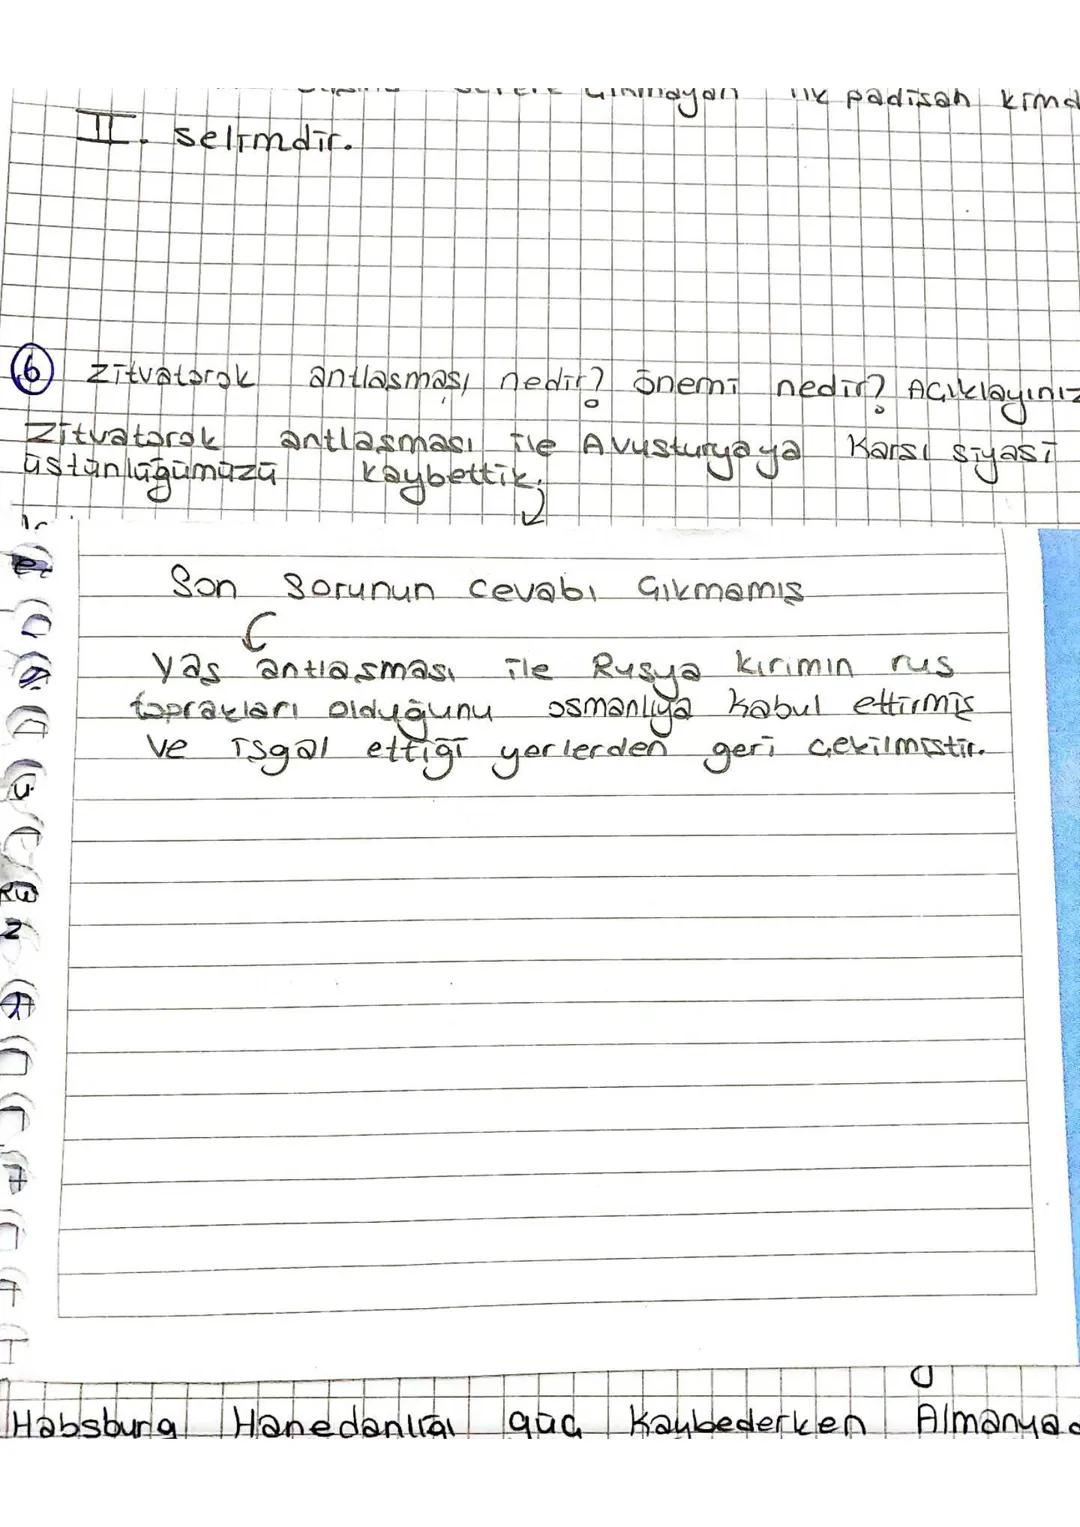 çıkmayan ilk padişah kimd
II. selimdir.
6 Zitvatorok antlaşması nedir? önemi nedir? Açıklayınız
Zitvatorok antlaşması ile Avusturyaya karşı siyasi
üstünlüğümüzü kaybettik.
Son Sorunun cevabı Gıkmamış
yaş antlaşması ile Rusya kırımın rus
toprakları olduğunu osmanlıya kabul ettirmiş
ve işgal ettiği yerlerden geri çekilmiştir.
Habsburg Hanedanlığı güç kaybederken Almanya